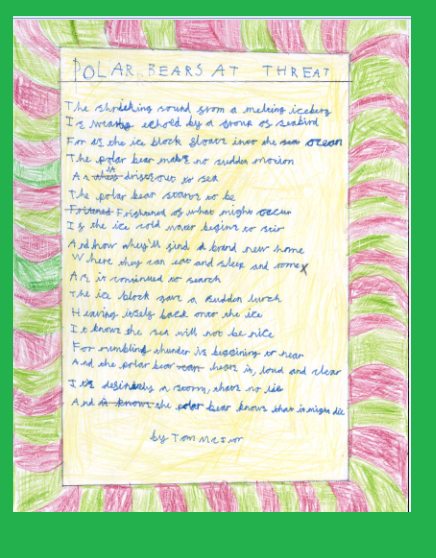 POLAR BEARS AT THREAT
The shreking sound from a melting iceberg
Is nearby echoed by a group of seabird
For as the ice block floats into the sea ocean
The polar bear makes no sudden motion
As it drifts out to sea
The polar bear starts to be
Frightened of what might occur
If the ice cold water begins to stir
And how they'll find a brand new home
Where they can eat and sleep and
As it continued to search
The ice block gave a sudden lurch
Heaving itself back over the ice
It knows the sea will not be nice
For rumbling thunder is beginning to hear
And the polar bear hears it, loud and clear
It's definitely a storm, that's no lie
And the polar bear knows that it might die
by Tom